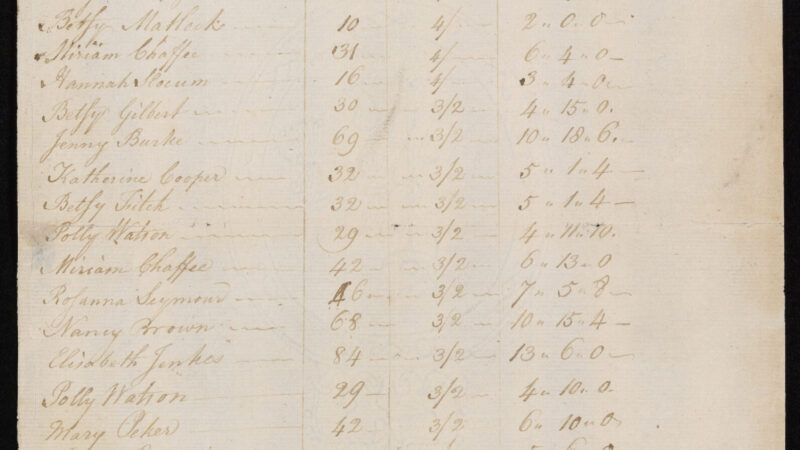 Betsy Matlock 10 4/ 2 " 0 " 0
Miriam Chaffee 31 4/ 6 " 4 " 0
Hannah Slocum 16 4/ 3 " 4 " 0
Betsy Gilbert 30 3/2 4 " 15 " 0
Jenny Burke 69 3/2 10 " 18 " 6
Katherine Cooper 32 3/2 5 " 1 " 4
Betsy Fitch 32 3/2 5 " 1 " 4
Polly Watson 29 3/2 4 " 11 " 10
Miriam Chaffee 42 3/2 6 " 13 " 0
Rosanna Seymour 46 3/2 7 " 5 " 8
Nancy Brown 68 3/2 10 " 15 " 4
Elisabeth Jenkes 84 3/2 13 " 6 " 0
Polly Watson 29 3/2 4 " 10 " 0
Mary Peker 42 3/2 6 " 10 " 0